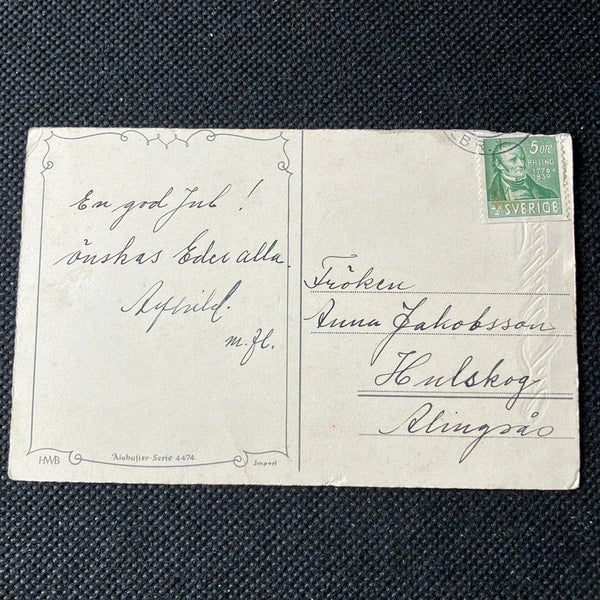 En god Jul!
önskas Eder alla.
m. fl.
HWB
Alabaster-Serie 4474
Import
B
5 ÖRE
P.H. LING
1776-
1839
SVERIGE
Fröken
Anna Jakobsson
Hulskog
Alingsås